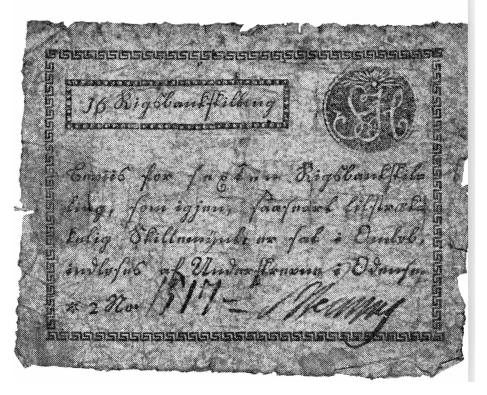 16 Rigsbankskilling
SH
Beviis for sexten Rigsbankskil-
ling, som igjen, saasnart tilstræk-
kelig Skillemynt er sat i Omløb,
indløses af Underskrevne i Odense.
* 2 No. 1517 —